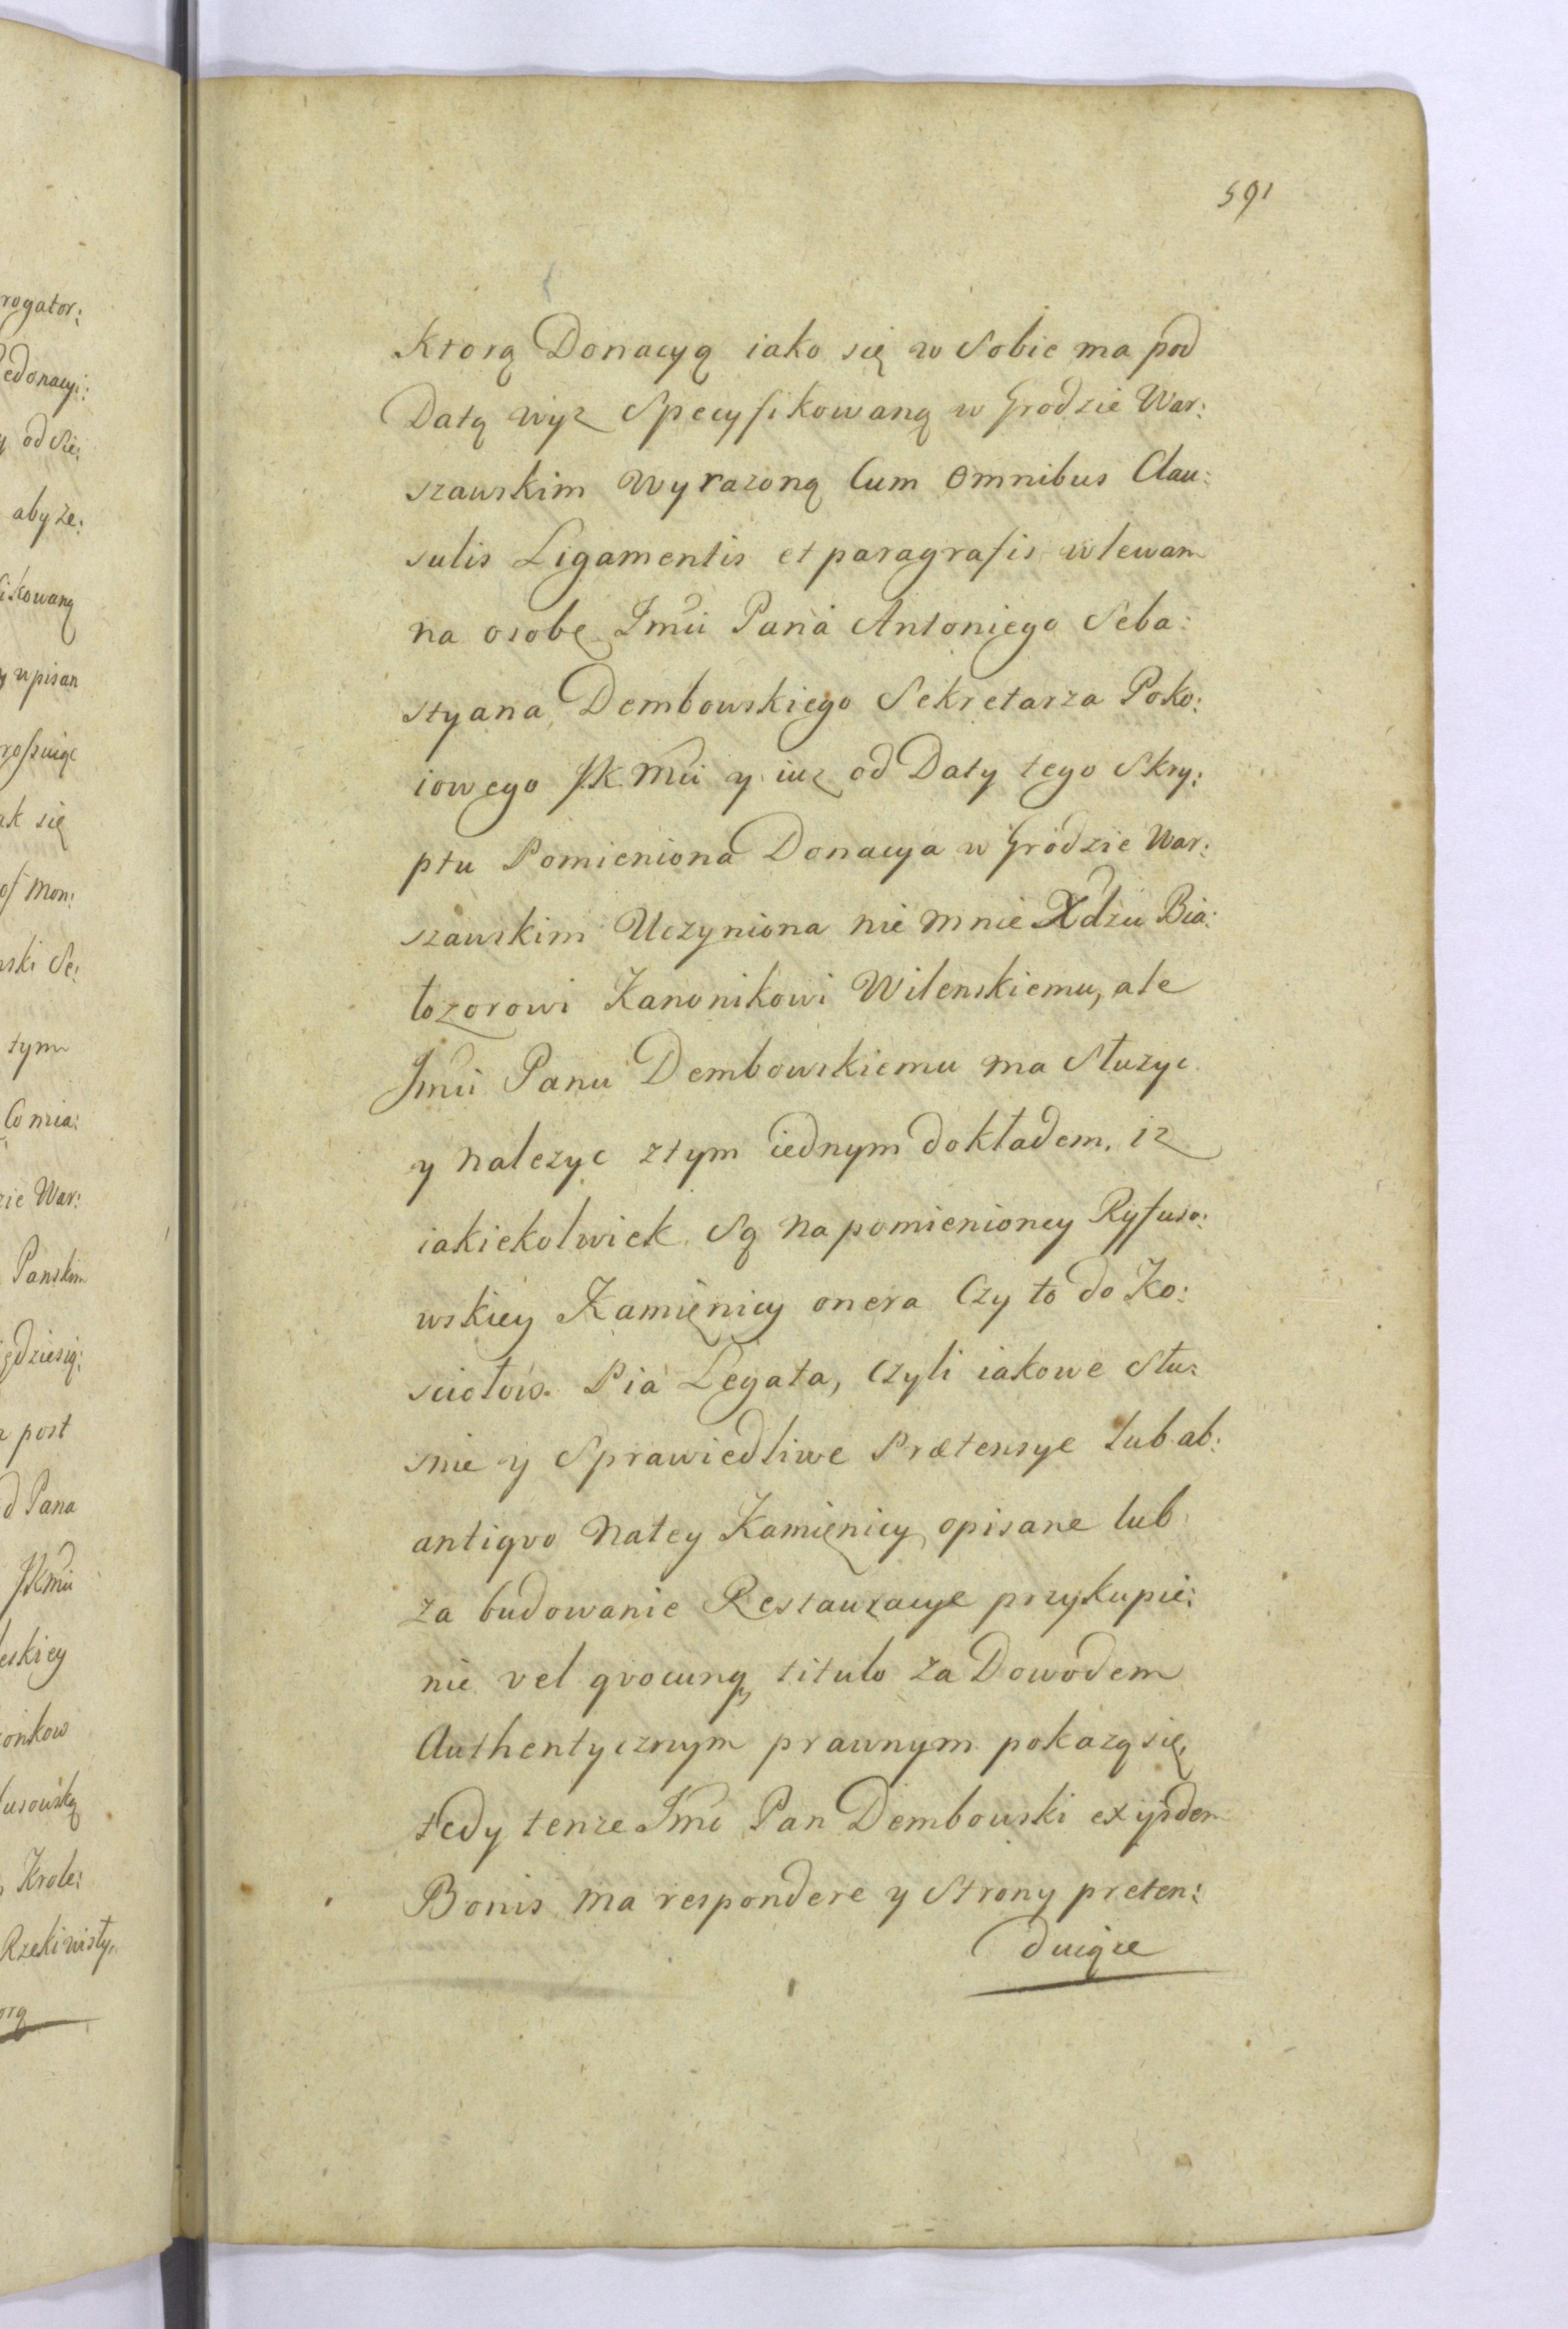 591
Ktorą Donacyą iako się w Sobie ma pod
Datą wyz Specyfikowaną w Grodzie War:
szawskim Wyrazoną Cum Omnibus Clau:
sulis Ligamentis et paragrafis wlewam
na osobę Jmci Pana Antoniego Seba:
styana Dembowskiego Sekretarza Poko:
iowego JKMci y iuz od Daty tego Skry:
ptu Pomieniona Donacya w Grodzie War:
szawskim Uczyniona nie mnie Xdzu Bia:
łozorowi Kanonikowi Wilenskiemu, ale
Jmci Panu Dembowskiemu ma Słuzyc
y nalezyc ztym iednym dokładem, iz
iakiekolwiek Są na pomienioney Ryfuso:
wskiey Kamięnicy onera Czy to do Ko:
sciołow Pia Legata, Czyli iakowe Słu:
snie y Sprawiedliwe Prætensye lub ab:
antiqvo natey Kamięnicy opisane lub
za budowanie Restauracye przykupie:
nie vel qvocunq titulo za Dowodem
Authentycznym prawnym pokazą się,
tedy tenze Jmc Pan Dembowski ex ijsdem
Bonis ma respondere y Strony preten:
duiące
rogator:
edonacyi:
y od Sie:
abyze:
ikowaną
upisan
ak się
Mon:
ski Se:
tym
Co mia:
zie War:
Panskim
ędziesią:
post
d Pana
JKmci
eskiey
onkow
usowską
Krole:
Rzeki wisły,
orą